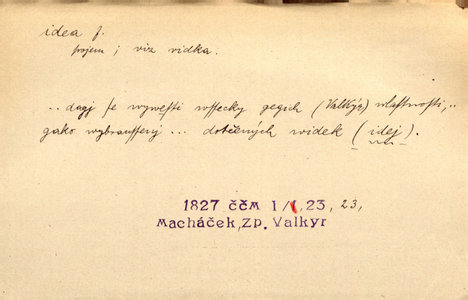 idea f.
pojem; viz vidka.
.. dagj se wywesti wssecky gegich (Valkýr) wlastnosti, ..
gako wybraussený ... dotčených widek (idej).
1827 ččm I/1, 23, 23,
Macháček, Zp. Valkyr